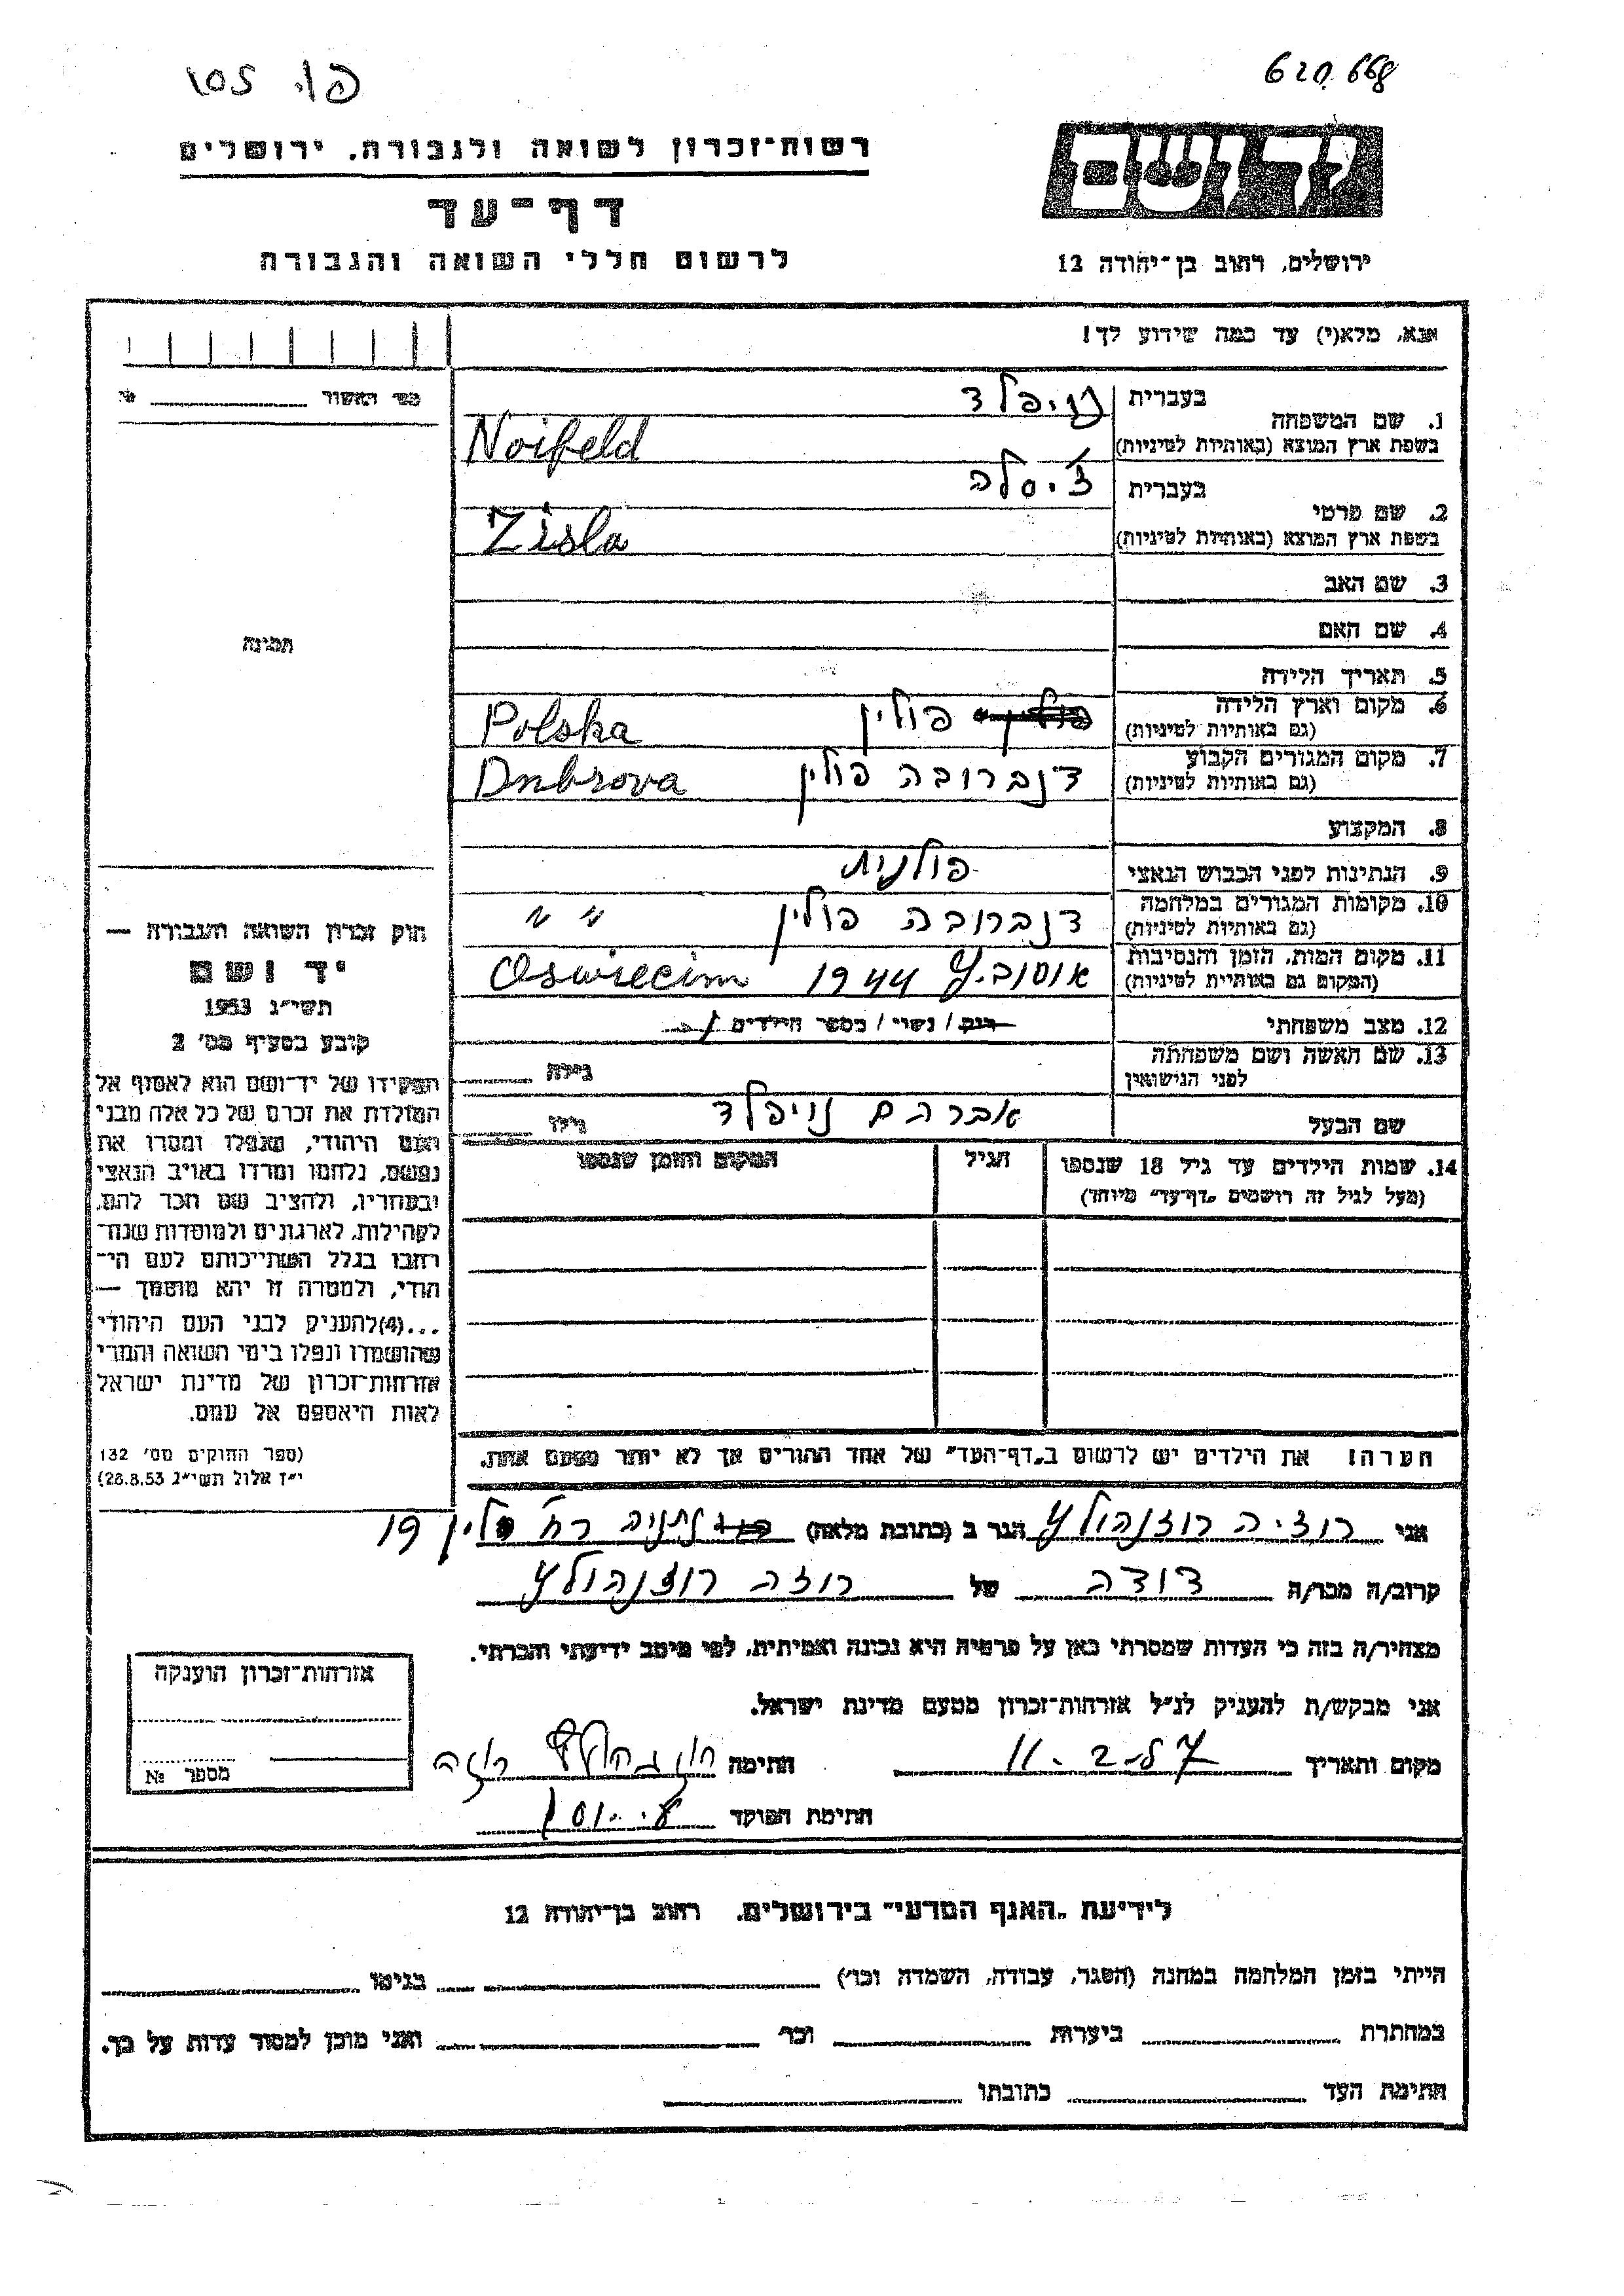 פו. 105
620.668
רשות־זכרון לשואה ולגבורה, ירושלים
יד ושם
דף־עד
לרשום חללי השואה והגבורה
ירושלים, רחוב בן־יהודה 12
אנא, מלא(י) עד כמה שידוע לך!
מס׳ האשור № 
1. שם המשפחה בעברית נויפלד
בשפת ארץ המוצא (באותיות לטיניות) Noifeld
2. שם פרטי בעברית צ׳יסלה
בשפת ארץ המוצא (באותיות לטיניות) Zisla
3. שם האב
4. שם האם
תמונה
5. תאריך הלידה
6. מקום וארץ הלידה (גם באותיות לטיניות) פולין פולין Polska
7. מקום המגורים הקבוע (גם באותיות לטיניות) דנברובה פולין Dnbrova
8. המקצוע
9. הנתינות לפני הכבוש הנאצי פולנית
10. מקומות המגורים במלחמה (גם באותיות לטיניות) דנברובה פולין " "
11. מקום המות, הזמן והנסיבות (המקום גם באותיות לטיניות) 1944 Oswiecim
12. מצב משפחתי רוק / נשוי / מספר הילדים
13. שם האשה ושם משפחתה לפני הנישואין גילה
שם הבעל אברהם נויפלד גילו
14. שמות הילדים עד גיל 18 שנספו הגיל המקום והזמן שנספו
(מעל לגיל זה רושמים „דף־עד״ מיוחד)
חוק זכרון השואה והגבורה —
יד ושם
תשי״ג 1953
קובע בסעיף מס׳ 2
תפקידו של יד־ושם הוא לאסוף אל
המולדת את זכרם של כל אלה מבני
העם היהודי, שנפלו ומסרו את
נפשם, נלחמו ומרדו באויב הנאצי
ובעוזריו, ולהציב שם וזכר להם,
לקהילות, לארגונים ולמוסדות שנח־
רבו בגלל השתייכותם לעם הי־
הודי, ולמטרה זו יהא מוסמך —
...(4)להעניק לבני העם היהודי
שהושמדו ונפלו בימי השואה והמרי
אזרחות־זכרון של מדינת ישראל
לאות היאספם אל עמם.
(ספר החוקים מס׳ 132
י״ז אלול תשי״ג 28.8.53)
הערה! את הילדים יש לרשום ב„דף־העד״ של אחד ההורים אך לא יותר מפעם אחת.
אני רוזיה רוזנהולץ הגר ב (כתובת מלאה) נתניה רח׳ 19
קרוב/ה מכר/ה דודה של רוזה רוזנהולץ
מצהיר/ה בזה כי העדות שמסרתי כאן על פרטיה היא נכונה ואמיתית, לפי מיטב ידיעתי והכרתי.
אני מבקש/ת להעניק לנ״ל אזרחות־זכרון מטעם מדינת ישראל.
מקום ותאריך 11.2.57 חתימה רוזנהולץ רוזה
חתימת הפוקד
אזרחות־זכרון הוענקה
מספר №
לידיעת „האגף המדעי״ בירושלים, רחוב בן־יהודה 12
הייתי בזמן המלחמה במחנה (הסגר, עבודה, השמדה וכו׳) בגיטו
במחתרת ביערות וכו׳ ואני מוכן למסור עדות על כך.
חתימת העד כתובתו